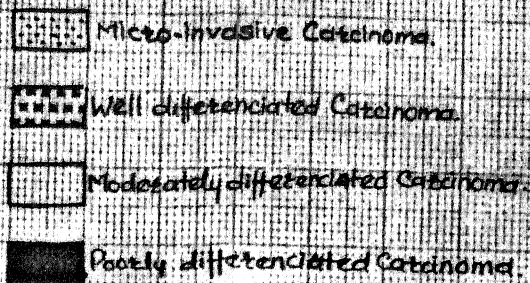 Micro-invasive Carcinoma.
Well differenciated Carcinoma.
Moderately differenciated Carcinoma.
Poorly differenciated Carcinoma.